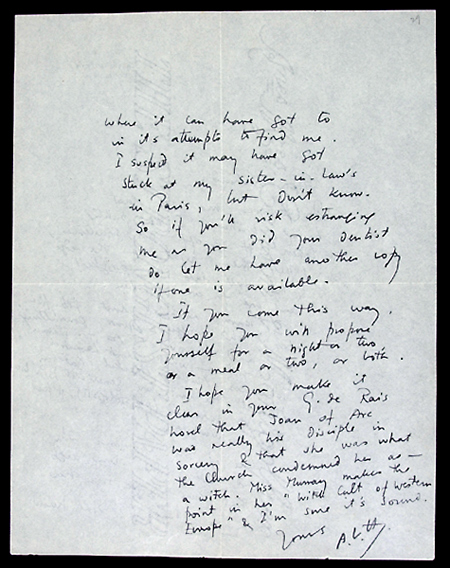 39
where it can have got to
in its attempts to find me.
I suspect it may have got
stuck at my sister-in-law's
in Paris, but don't know.
So if you'll risk estranging
me as you did your dentist
do let me have another copy
if one is available.
If you come this way,
I hope you will propose
yourself for a night or two
or a meal or two, or both.
I hope you make it
clear in your G. de Rais
novel that Joan of Arc
was really his disciple in
sorcery & that she was what
the Church condemned her as —
a witch. Miss Murray makes the
point in her "Witch Cult of Western
Europe" & I'm sure it's sound.
Yours